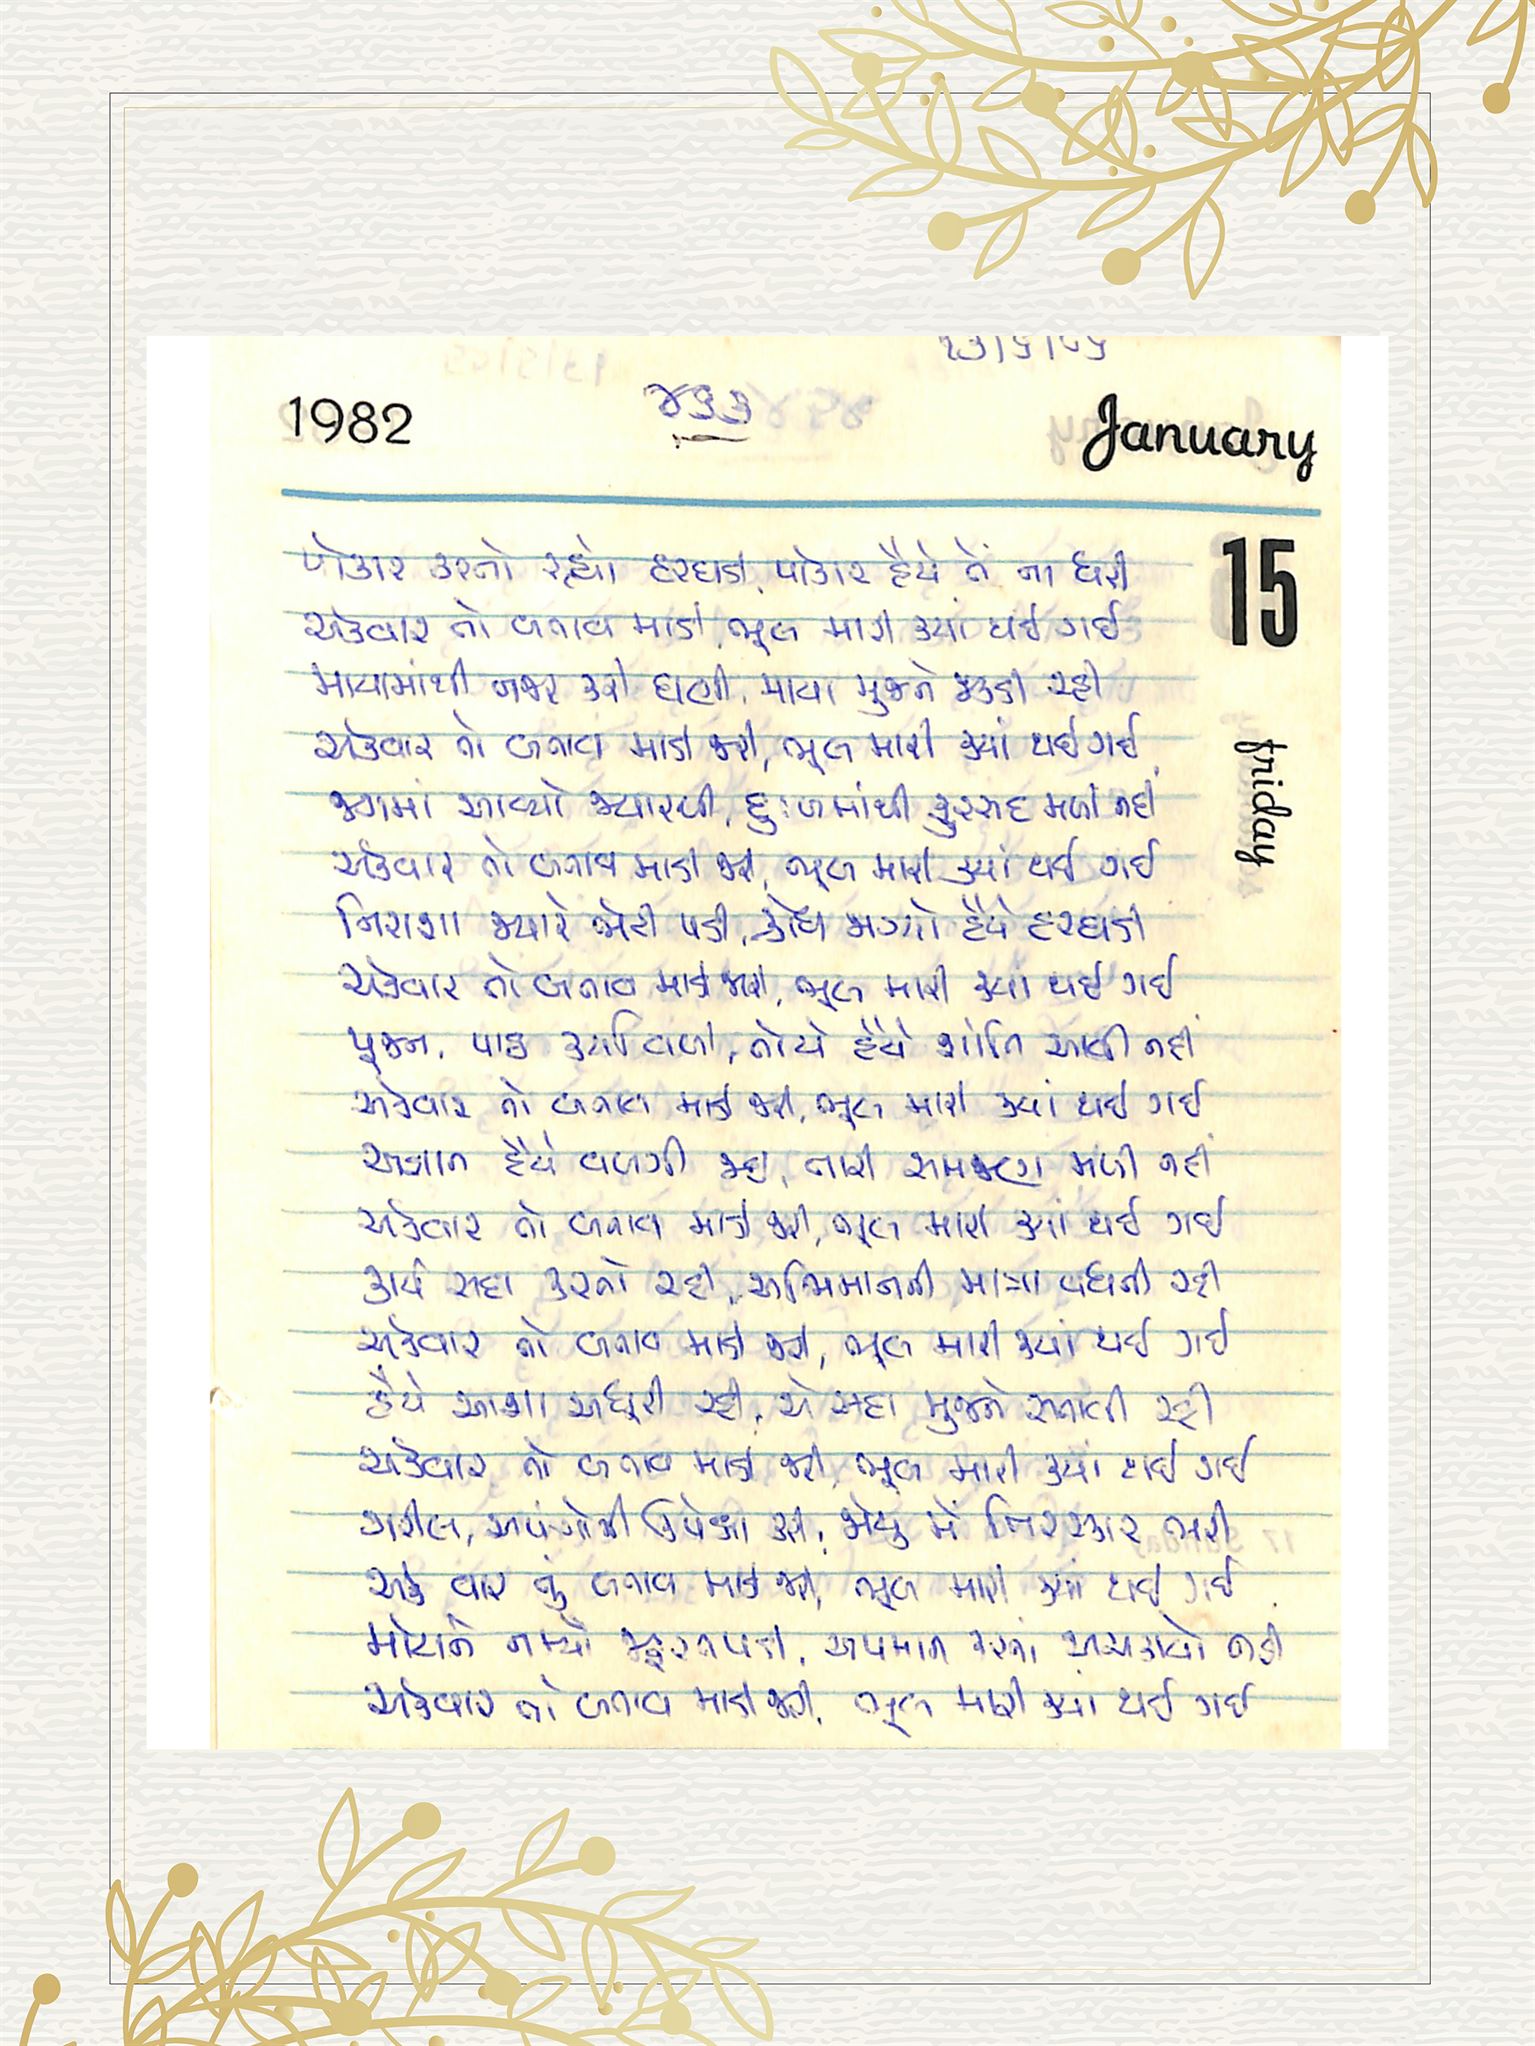 1982
૪૩૩
January
15
friday
પોકાર કરતો રહ્યો હરઘડી, પોકાર હૈયે તેં ના ધરી
એકવાર તો બતાવ માડી, ભૂલ મારી ક્યાં થઈ ગઈ
માયામાંથી નજર કરી ઘણી, માયા મુજને જકડી રહી
એકવાર તો બતાવ માડી જરી, ભૂલ મારી ક્યાં થઈ ગઈ
જગમાં આવ્યો જ્યારથી, દુઃખમાંથી ફુરસદ મળી નહીં
એકવાર તો બતાવ માડી જરી, ભૂલ મારી ક્યાં થઈ ગઈ
નિરાશા જ્યારે જોરી પડી, ક્રોધ જાગ્યો હૈયે હરઘડી
એકવાર તો બતાવ માડી જરી, ભૂલ મારી ક્યાં થઈ ગઈ
પૂજન, પાઠ કર્યા વળી, તોયે હૈયે શાંતિ આવી નહીં
એકવાર તો બતાવ માડી જરી, ભૂલ મારી ક્યાં થઈ ગઈ
અજ્ઞાન હૈયે વળગી જ્યું, તારી સમજણ મળી નહીં
એકવાર તો બતાવ માડી જરી, ભૂલ મારી ક્યાં થઈ ગઈ
કાર્ય સદા કરતો રહી, અભિમાનની માત્રા વધતી રહી
એકવાર તો બતાવ માડી જરી, ભૂલ મારી ક્યાં થઈ ગઈ
હૈયે આશા અધૂરી રહી, એ સદા મુજને સતાવી રહી
એકવાર તો બતાવ માડી જરી, ભૂલ મારી ક્યાં થઈ ગઈ
ગરીબ, અપંગોની ઉપેક્ષા કરી, જોયું મેં તિરસ્કાર ભરી
એક વાર તું બતાવ માડી જરી, ભૂલ મારી ક્યાં થઈ ગઈ
મોટાને નમ્યો જરૂરત પડી, અપમાન કરતા અચકાયો નહી
એકવાર તો બતાવ માડી જરી, ભૂલ મારી ક્યાં થઈ ગઈ